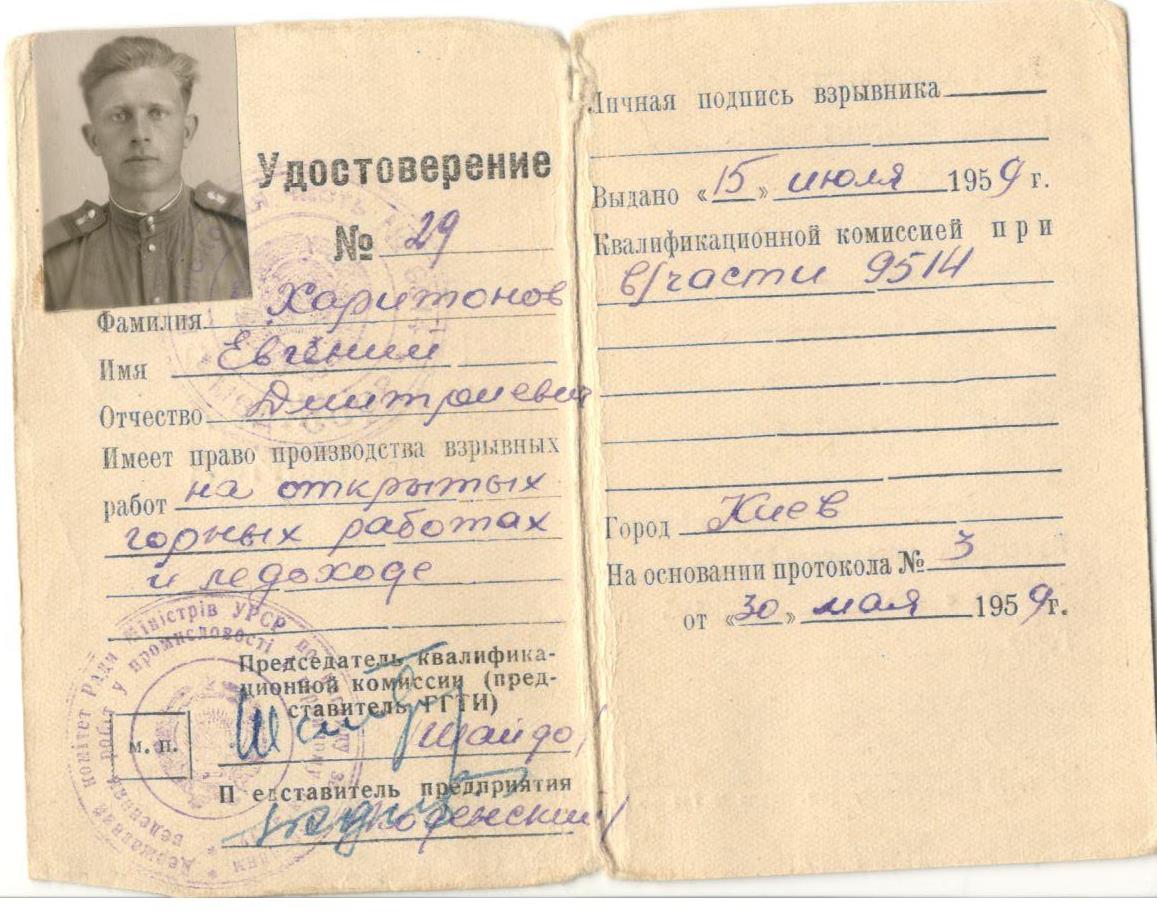 Удостоверение
№ 29
Фамилия Харитонов
Имя Евгений
Отчество Дмитриевич
Имеет право производства взрывных
работ на открытых
горных работах
и ледоходе
Председатель квалифика-
ционной комиссии (пред-
ставитель ГГТИ)
Шайдо
м. п.
П едставитель предприятия
Державний комітет Ради Міністрів УРСР по нагляду
робіт у промисловості
Личная подпись взрывника
Выдано «15» июля 1959 г.
Квалификационной комиссией при
в/части 9514
Город Киев
На основании протокола № 3
от «30» мая 1959 г.